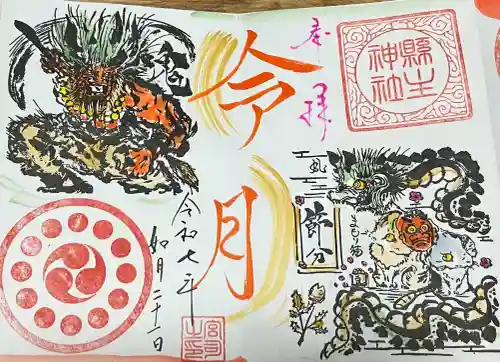 奉拝
縣主
神社
鬼
令月
節分
まもり猫
令和七年
如月二十一日